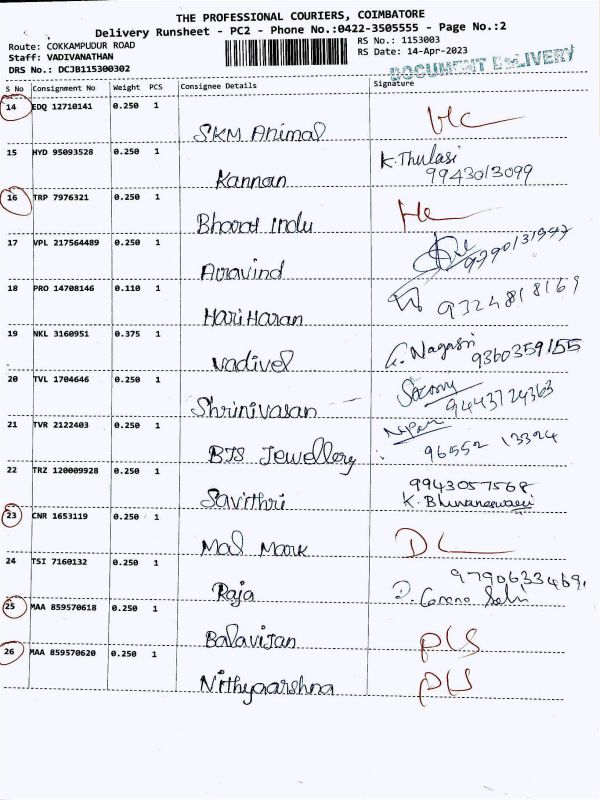 THE PROFESSIONAL COURIERS, COIMBATORE
Delivery Runsheet - PC2 - Phone No.:0422-3505555 - Page No.:2
Route: COKKAMPUDUR ROAD
Staff: VADIVANATHAN
DRS No.: DCJB115300302
RS No.: 1153003
RS Date: 14-Apr-2023
DOCUMENT DELIVERY
S No Consignment No Weight PCS Consignee Details Signature
14 EDQ 12710141 0.250 1
SKM Animal
15 HYD 95093528 0.250 1 K. Thulasi
Kannan 9943013099
16 TRP 7976321 0.250 1
Bharat Indu
17 VPL 217564489 0.250 1
Aravind 9790131997
18 PRO 14708146 0.110 1
HariHaran 9324818169
19 NKL 3160951 0.375 1
Vadivel G. Nagasri 9360359155
20 TVL 1704646 0.250 1
Shrinivasan 9443724363
21 TVR 2122403 0.250 1
BTS Jewellery 96552 13324
22 TRZ 120009928 0.250 1 9943057568
Savithri K. Bhuvaneswari
23 CNR 1653119 0.250 1
Mal Mark DL
24 TSI 7160132 0.250 1 9790633469
Raja
25 MAA 859570618 0.250 1
Balavijan PLS
26 MAA 859570620 0.250 1
Nithyaarshna PLS